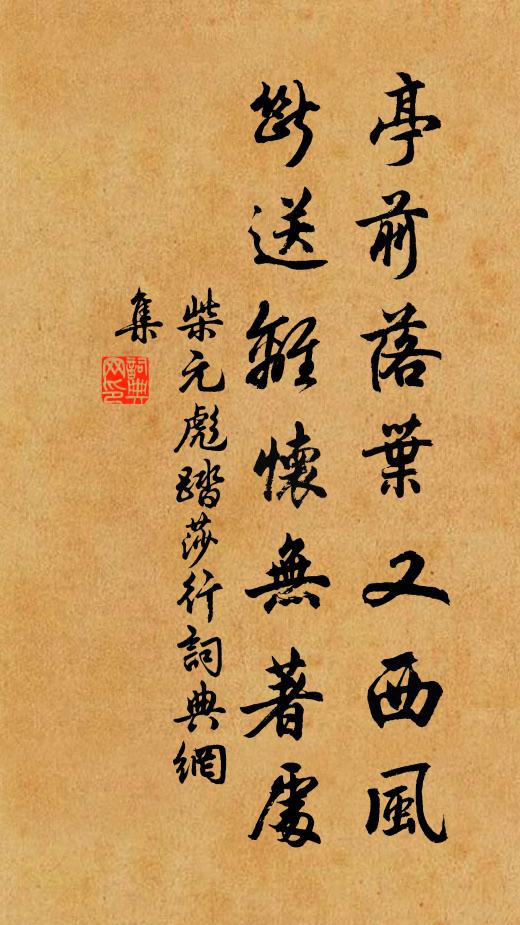 亭前落葉又西風
斷送離懷無著處
柴元彪踏莎行詞典網
集
詞典
网印